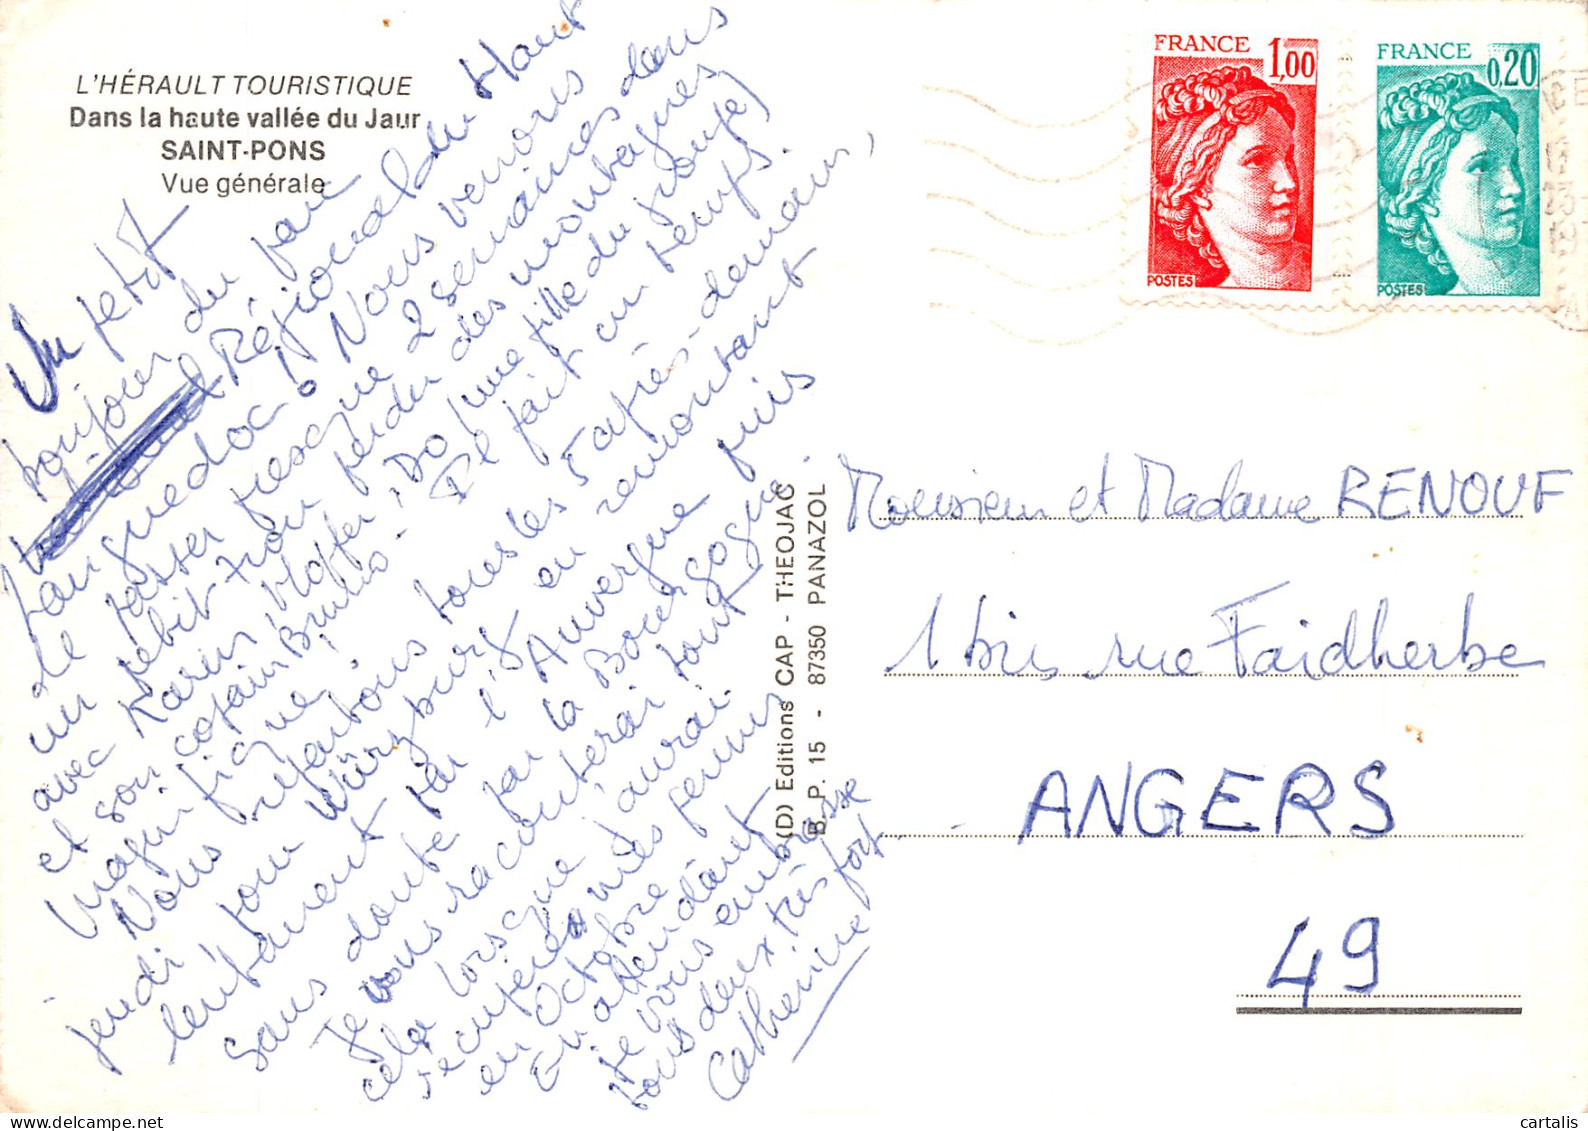 L'HÉRAULT TOURISTIQUE
Dans la haute vallée du Jaur
SAINT-PONS
Vue générale
Un petit
bonjour du parc
Régional du Haut
Languedoc. Nous venons
de passer presque 2 semaines dans
un petit trou perdu des montagnes
avec Karin, Hopfer, Do (une fille du groupe)
et son copain Bruno - Il fait un temps
magnifique.
Nous repartons tous les 5 après-demain,
jeudi pour Würzburg en remontant
lentement par l'Auvergne puis
sans doute par la Bourgogne
Je vous raconterai tout
cela lorsque j'aurai
récupéré mes penns
en Octobre
En attendant
je vous embrasse
tous deux très fort
Catherine
(D) Editions CAP - THEOJAC
B. P. 15 - 87350 PANAZOL
FRANCE 1,00
POSTES
FRANCE 0,20
POSTES
Monsieur et Madame RENOUF
1 bis rue Faidherbe
ANGERS
49
cartalis
delcampe.net